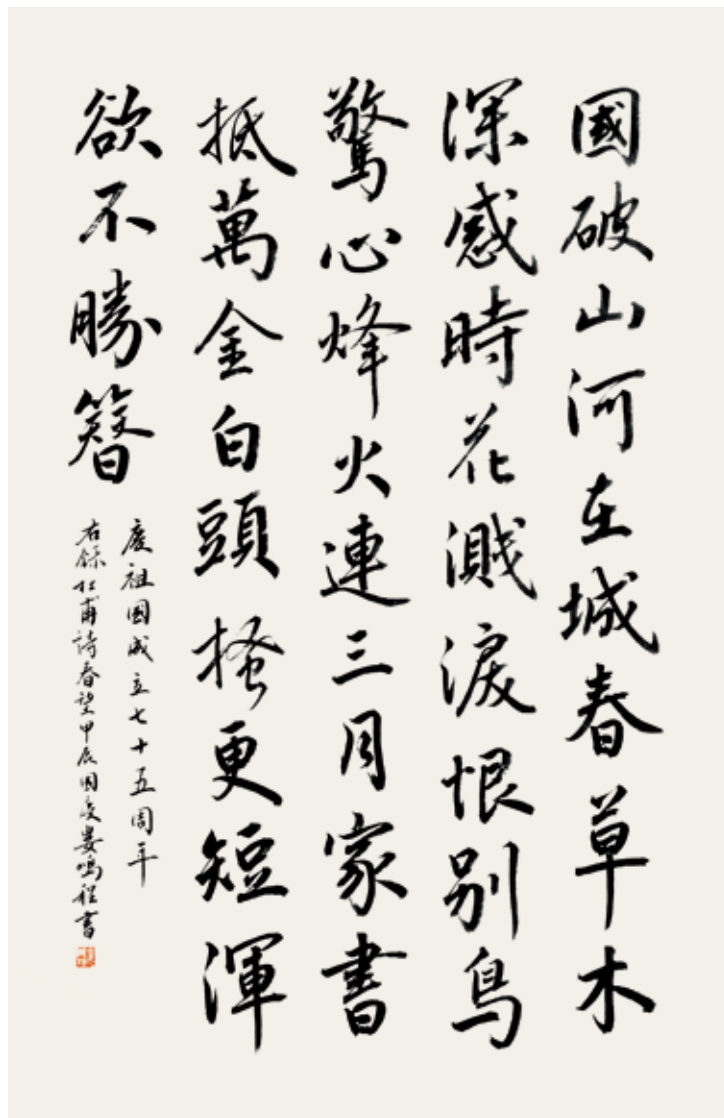 國破山河在城春草木
深感時花濺淚恨别鳥
驚心烽火連三月家書
抵萬金白頭搔更短渾
欲不勝簪
慶祖國成立七十五周年
右錄杜甫詩春望甲辰國慶婁鳴程書